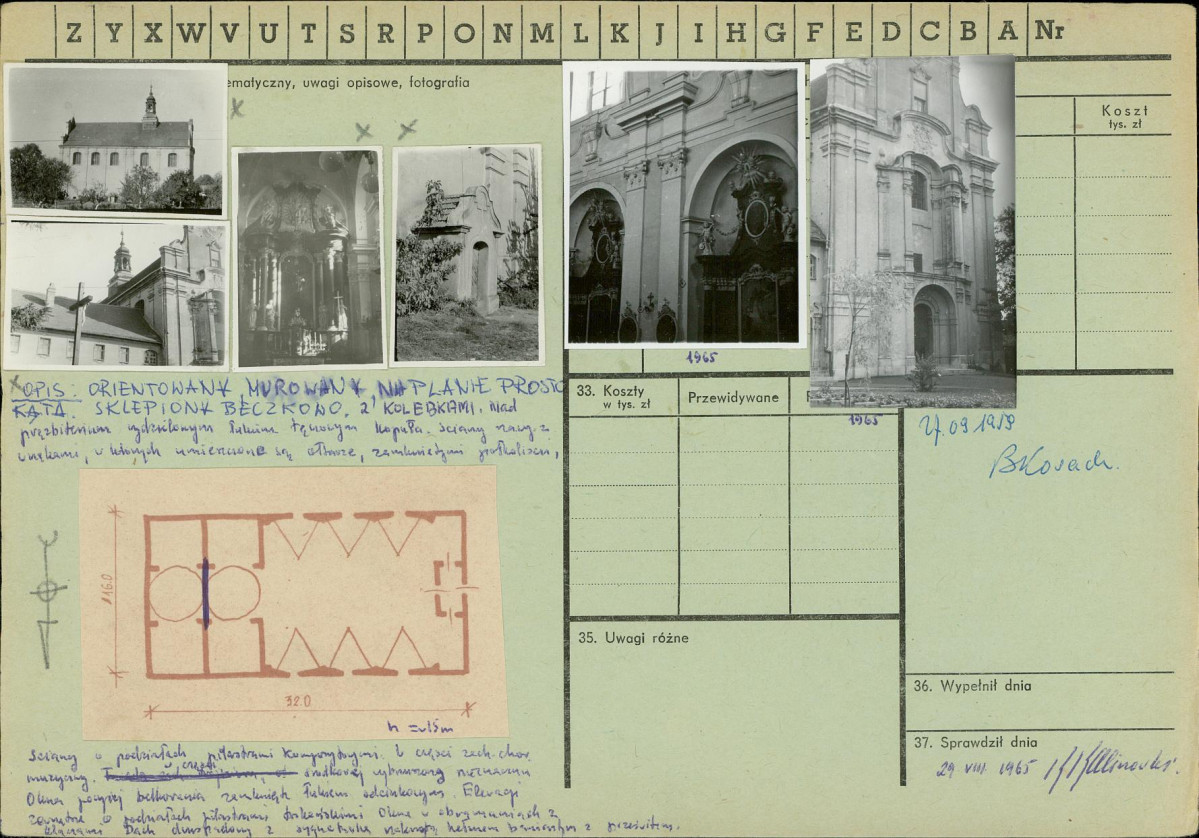 Z Y X W V U T S R P O N M L K J I H G F E D C B A Nr
ematyczny, uwagi opisowe, fotografia
Koszt
tys. zł
1965
1965
OPIS: ORIENTOWANY, MUROWANY, NA PLANIE PROSTO
KĄTA. SKLEPIONY BECZKOWO, Z KOLEBKAMI. Nad
prezbiterium wydzielonym łukiem tęczowym kopuła. Ściany nawy z
wnękami, w których umieszczone są ołtarze, zamkniętymi półkoliście,
16.0
32.0
h = 15m
Ściany o podziałach pilastrami kompozytowymi. W części zach. chór
muzyczny. części środkowej
Okna powyżej belkowania zamknięte łukiem odcinkowym. Elewacje
zewnętrzne o podziałach pilastrami toskańskimi Okna w obramieniach z
Dach dwuspadowy z sygnaturką nakrytą hełmem baniastym z prześwitem.
33. Koszty
w tys. zł
Przewidywane
27.09.1959
BKosach.
35. Uwagi różne
36. Wypełnił dnia
37. Sprawdził dnia
29 VIII 1965